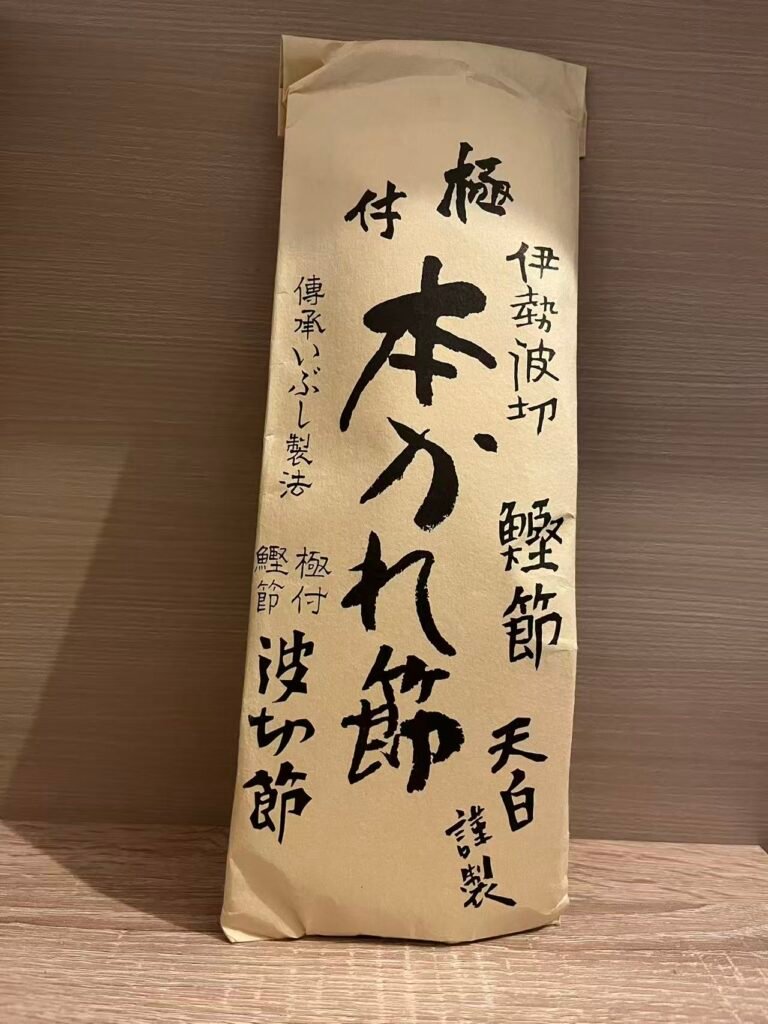 伊勢波切
鰹節
天白
謹製
極付
本かれ節
傳承いぶし製法
極付
鰹節
波切節